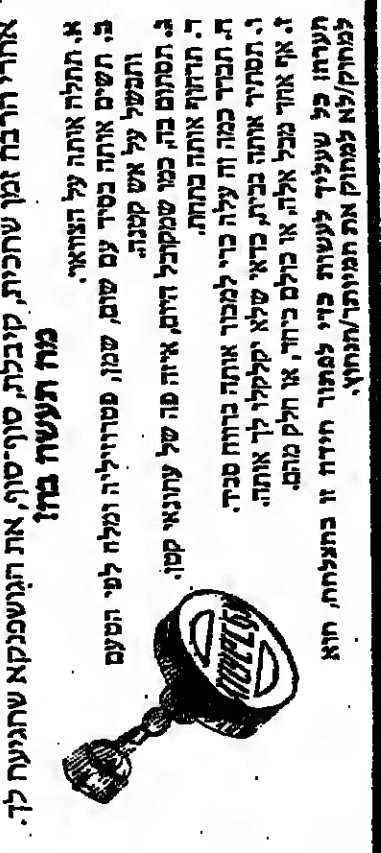 אחרי הרבה זמן שחכית, קיבלת, סוף־סוף, את הגושפנקא שהגיעה לך.
מה תעשה בה?
א. תתלה אותה על הצוואר.
ב. תשים אותה בסיר עם שום, שמן, פטרוזיליה ומלח לפי הטעם
ותבשל על אש קטנה.
ג. תסתום בה, כמו שמקובל היום, איזה פה של עתונאי קטן.
ד. תדחוף אותה בתחת.
ה. תברר כמה זה עלה כדי למכור אותה ברווח סביר.
ו. תסתיר אותה בבית, כדאי שלא יקלקלו לך אותה.
ז. אף אחד מכל אלה, או כולם ביחד, או חלק מהם.
הערה: כל שעליך לעשות כדי לפתור חידה זו בהצלחה, הוא
למחוק/לא למחוק את המיותר/הנחוץ.